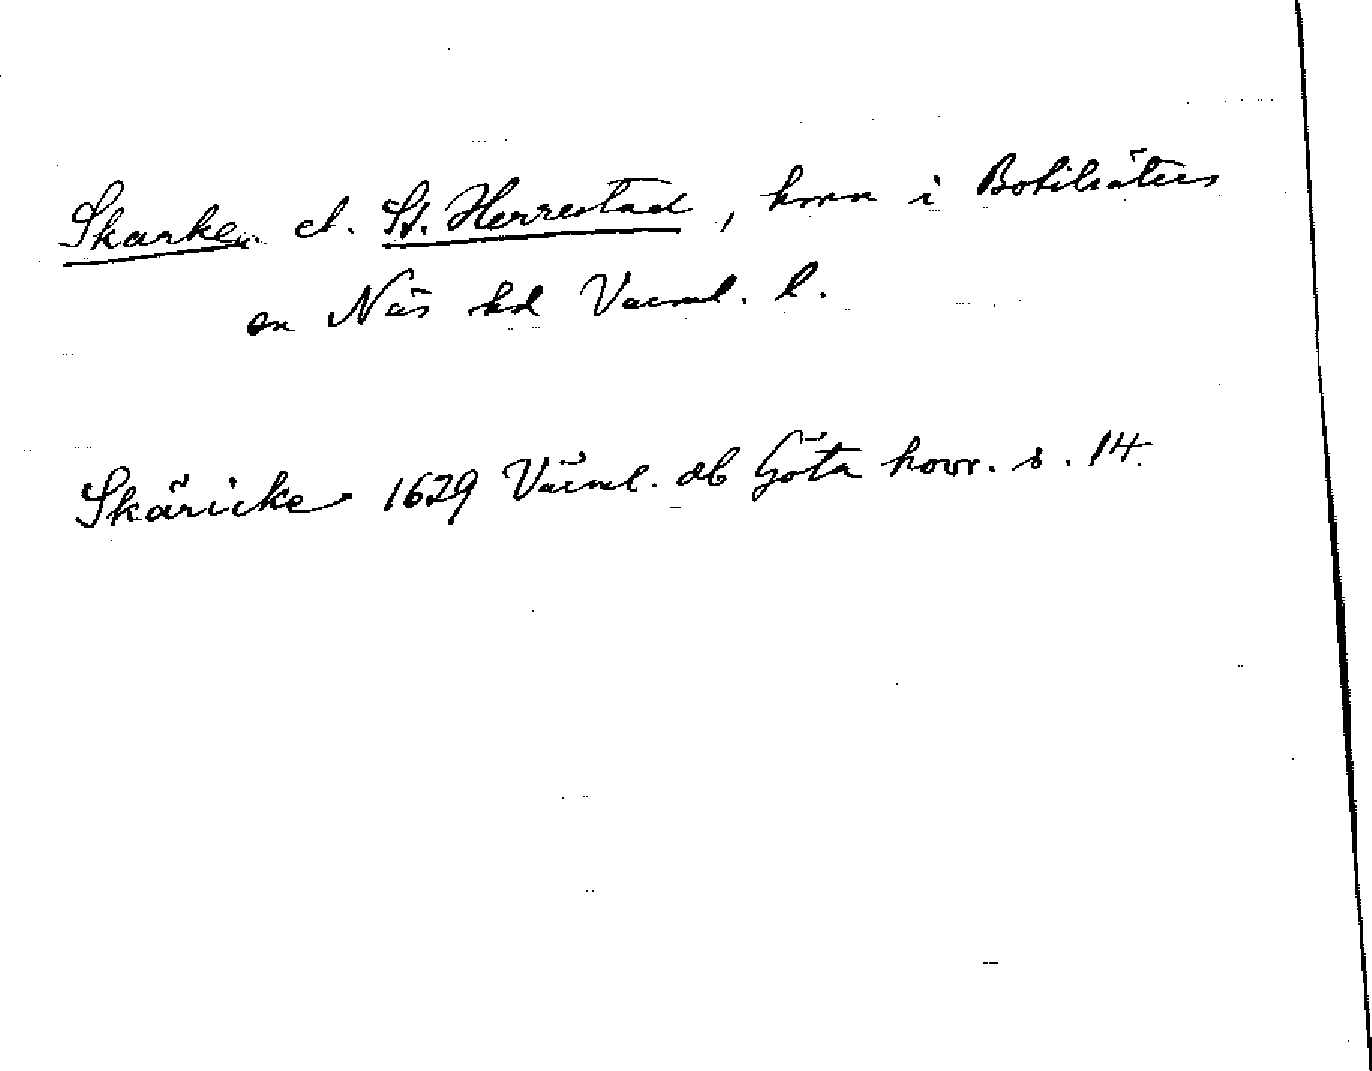 Skarken el. St. Herrestad, hmn i Botilsäters
sn Näs hd Värml. l.
Skäricke 1629 Värml. db Göta hovr. s. 14.